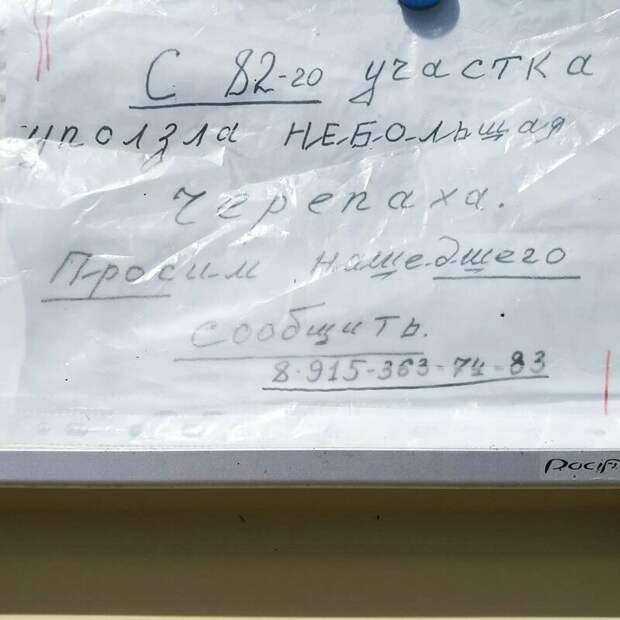 С 82-го участка
уползла НЕБОЛЬшая
черепаха.
Просим нашедшего
сообщить.
8-915-363-74-83